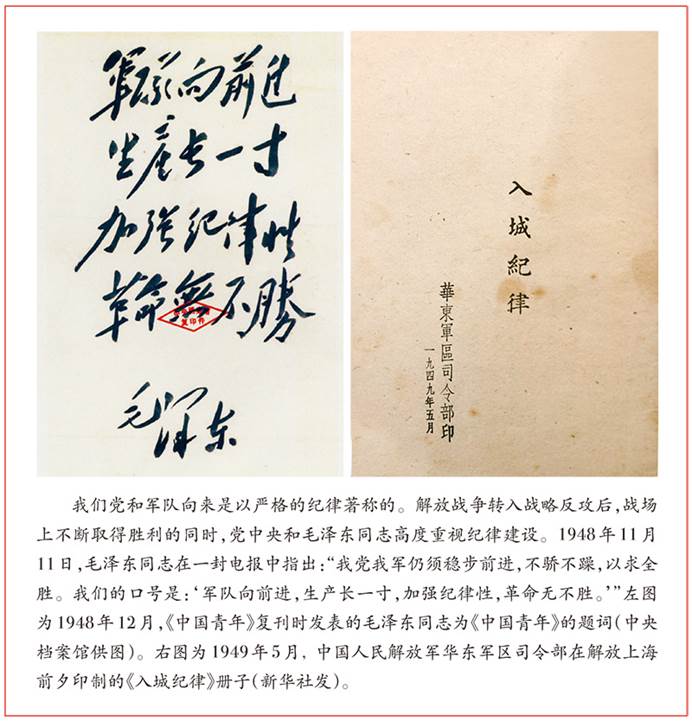 军队向前进
生產长一寸
加强纪律性
革命無不勝
毛泽东
复印件
入城紀律
華東軍區司令部印
一九四九年五月
我们党和军队向来是以严格的纪律著称的。解放战争转入战略反攻后，战场
上不断取得胜利的同时，党中央和毛泽东同志高度重视纪律建设。1948年11月
11日，毛泽东同志在一封电报中指出：“我党我军仍须稳步前进，不骄不躁，以求全
胜。我们的口号是：‘军队向前进，生产长一寸，加强纪律性，革命无不胜。’”左图
为1948年12月，《中国青年》复刊时发表的毛泽东同志为《中国青年》的题词（中央
档案馆供图）。右图为1949年5月，中国人民解放军华东军区司令部在解放上海
前夕印制的《入城纪律》册子（新华社发）。